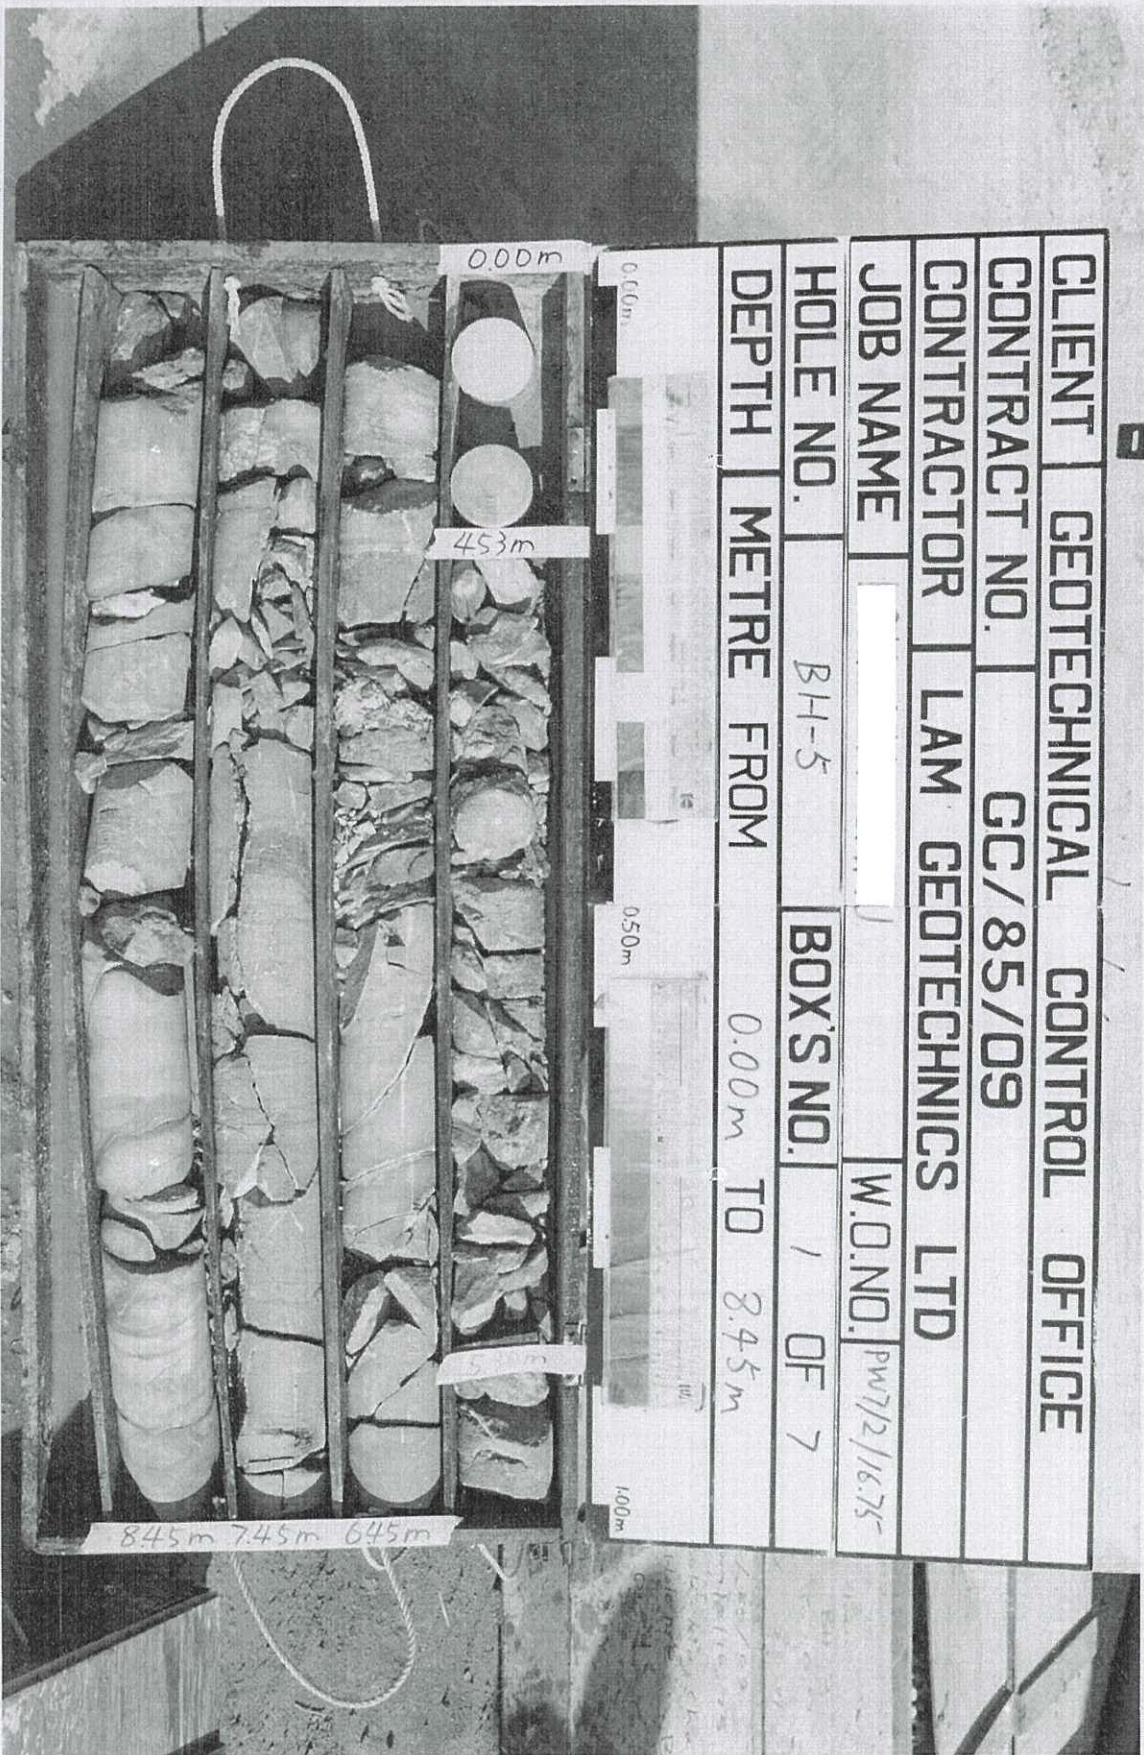 CLIENT GEOTECHNICAL CONTROL OFFICE
CONTRACT NO. GC/85/09
CONTRACTOR LAM GEOTECHNICS LTD
JOB NAME W.O.NO. PW7/2/16.75
HOLE NO. BH-5 BOX'S NO. 1 OF 7
DEPTH METRE FROM 0.00m TO 8.45m
0.00m 0.50m 1.00m
0.00m 4.53m
6.45m
7.45m
8.45m